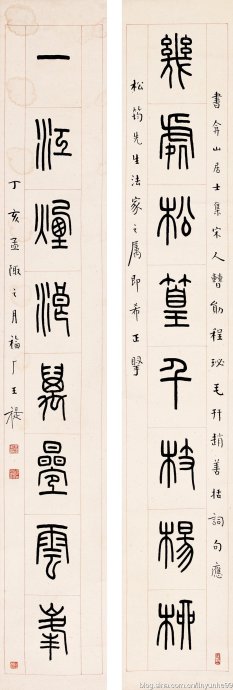 書弇山居士集宋人曹勛程珌毛幵趙善括詞句應
幾處松篁千枝楊柳
松筠先生法家之屬即希正
一江煙浪萬疊雲峯
丁亥孟陬之月福厂王禔
blog.sina.com.cn/linyunhe99